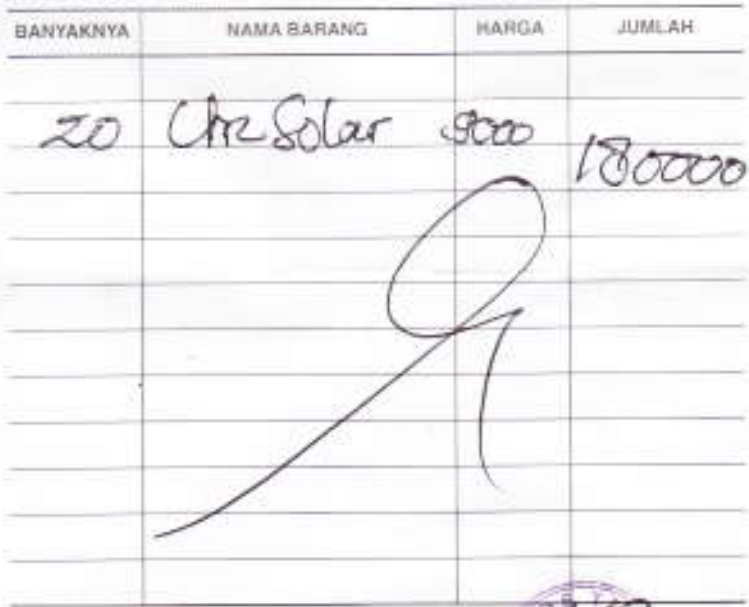 BANYAKNYA NAMA BARANG HARGA JUMLAH
20 Ltr Solar 9000 180000